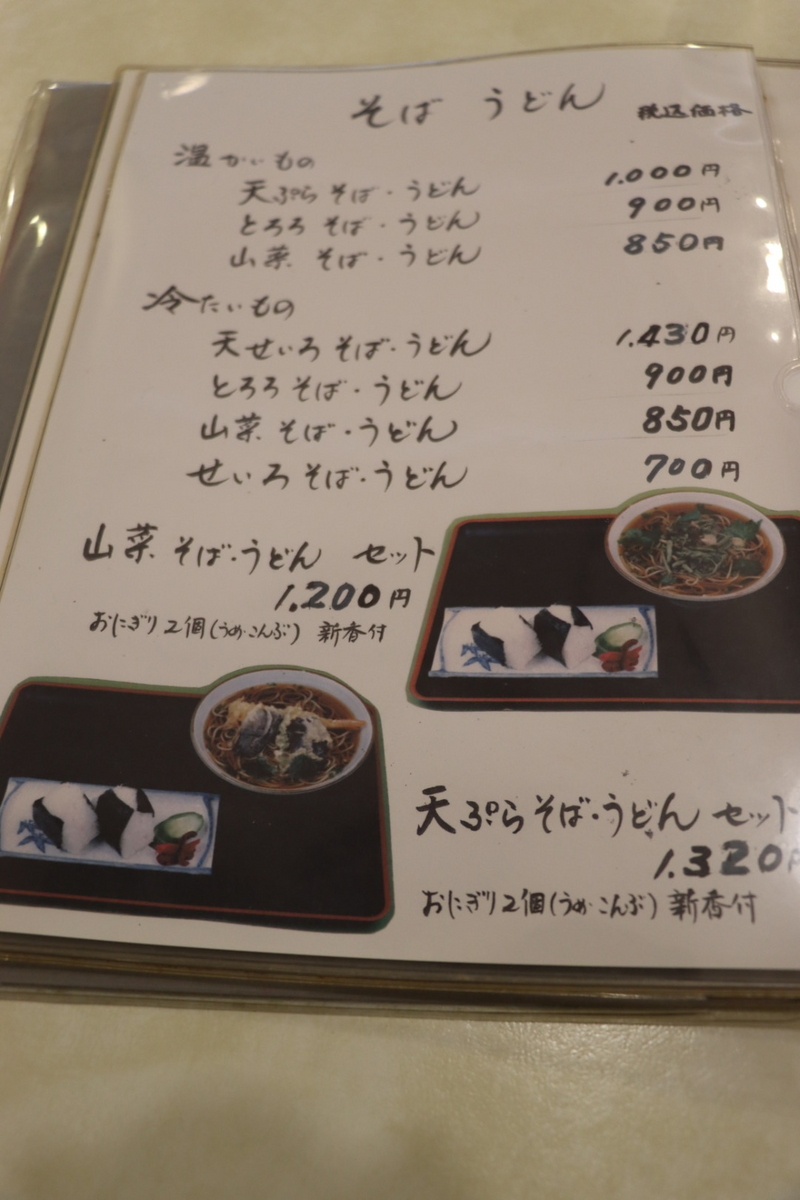 そば うどん 税込価格
温かいもの
天ぷら そば・うどん 1,000円
とろろ そば・うどん 900円
山菜 そば・うどん 850円
冷たいもの
天せいろ そば・うどん 1,430円
とろろ そば・うどん 900円
山菜 そば・うどん 850円
せいろ そば・うどん 700円
山菜 そば・うどん セット
1,200円
おにぎり2個(うめ・こんぶ) 新香付
天ぷら そば・うどん セット
1,320円
おにぎり2個(うめ・こんぶ) 新香付